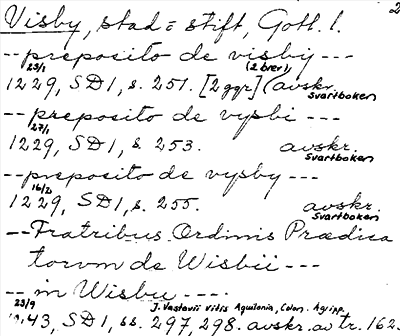 Visby, stad o stift, Gotl. l. 2
-- preposito de visby ---
23/1 (2 brev)
1229, SD 1, s. 251. [2 ggr] (avskr. Svartboken
-- preposito de vysbi ---
27/1
1229, SD 1, s. 253. avskr. Svartboken
-- preposito de vysby ---
16/2
1229, SD 1, s. 255. avskr. Svartboken
-- Fratribus Ordinis Prædica
torum de Wisbii ---
-- in Wisbu ---
23/9 J. Vastovii Vitis Aquilonia, Colon. Agripp.
43, SD 1, ss. 297, 298. avskr. av tr. 162.